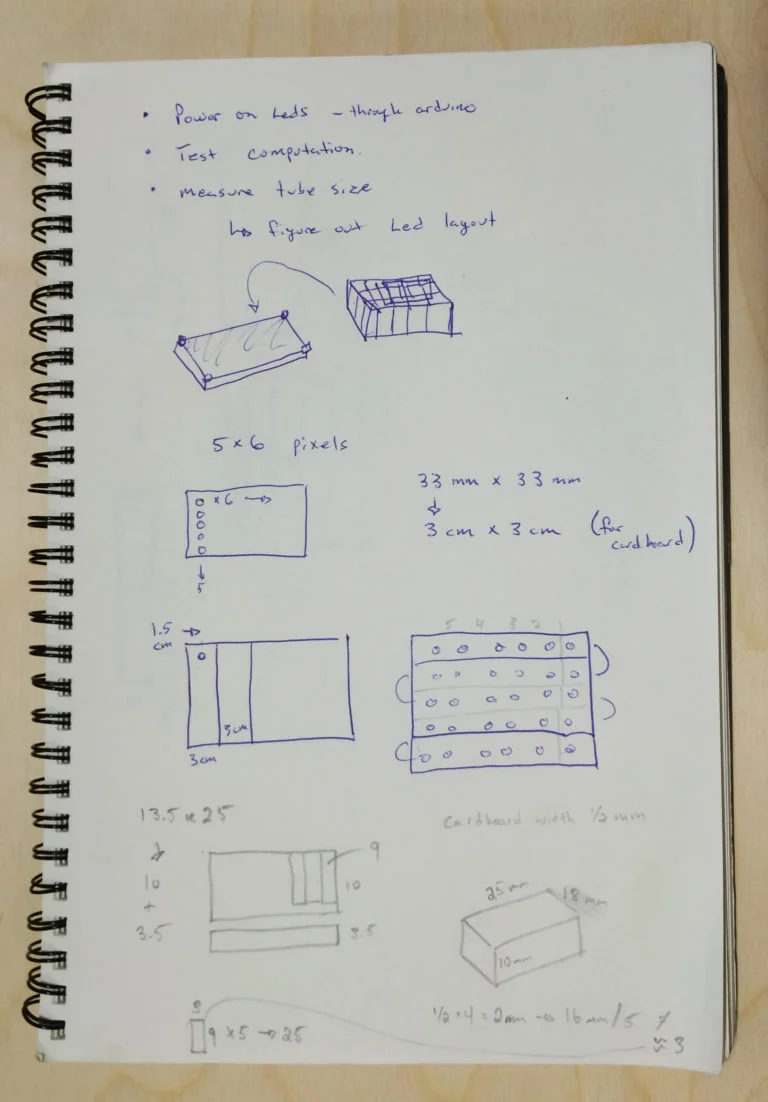 • Power on Leds - through arduino
• Test computation.
• measure tube size
↳ figure out Led layout
5 × 6 pixels
× 6 →
↓
5
33 mm × 33 mm
↓
3 cm × 3 cm (for
cardboard)
1.5 →
cm
3cm
3cm
5 4 3 2
13.5 × 25
↓
10
+
3.5
9
10
3.5
cardboard width 1/2 mm
25 mm
18 mm
10mm
9 × 5 → 25
1/2 × 4 = 2mm → 16 mm/5
≈ 3